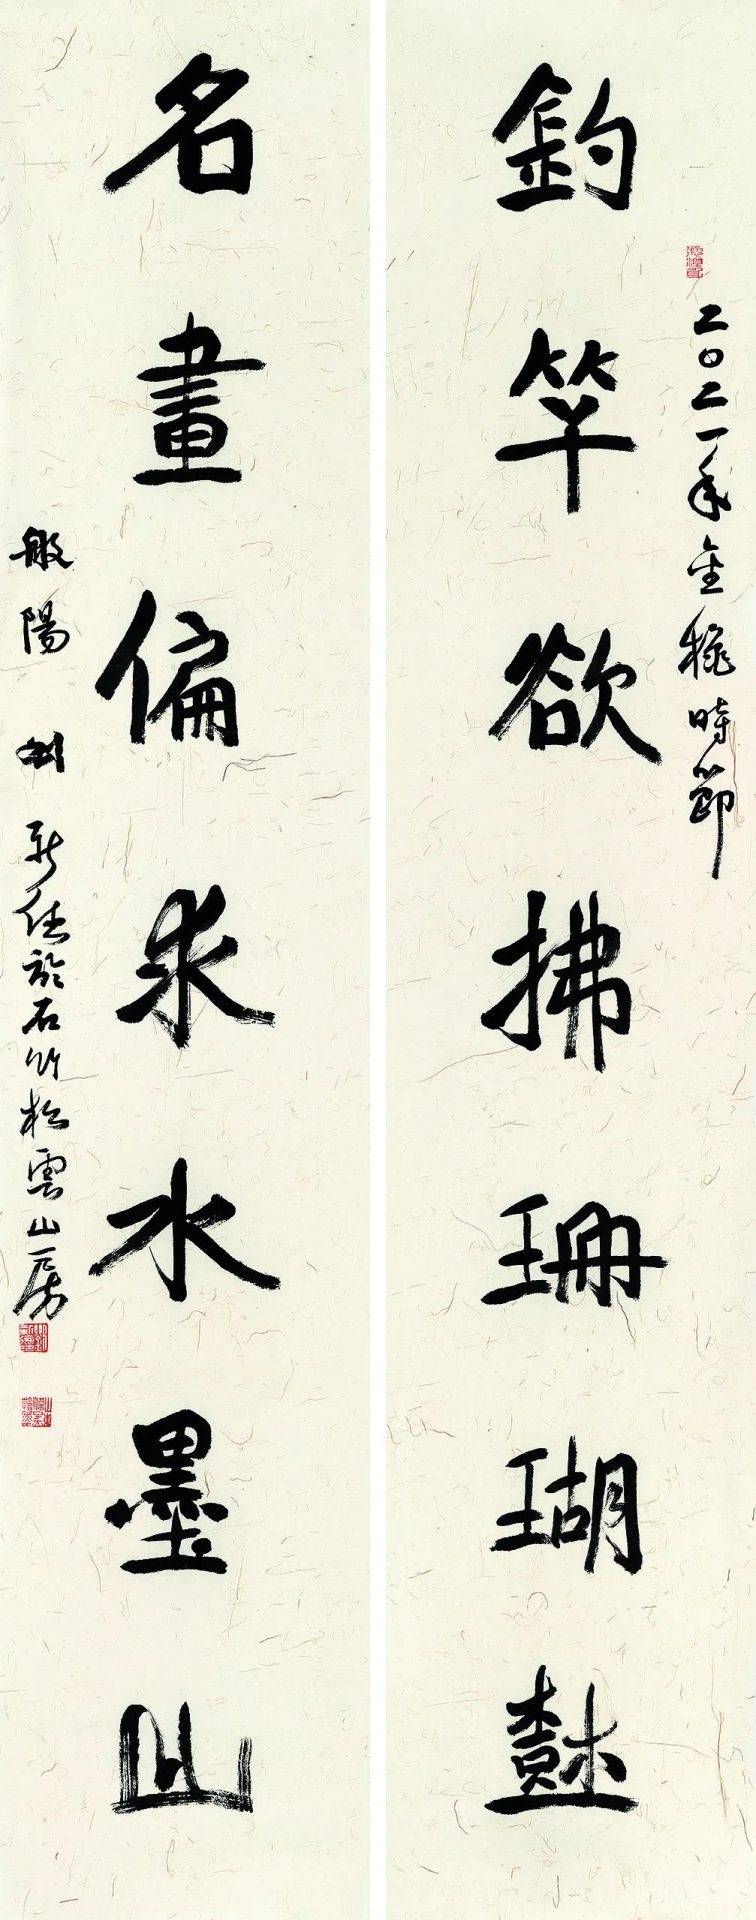 二〇二一年金穐時節
釣竿欲拂珊瑚樹
名畫偏求水墨山
般陽 於石竹松雲山房